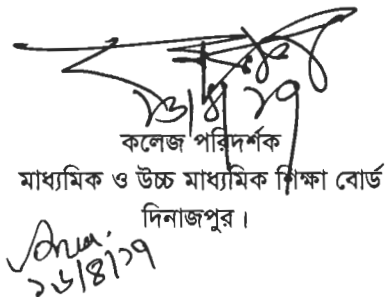 কলেজ পরিদর্শক
মাধ্যমিক ও উচ্চ মাধ্যমিক শিক্ষা বোর্ড
দিনাজপুর।
১৬/৪/১৭